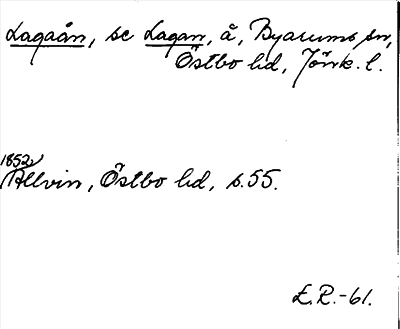 Lagaån, se Lagan, å, Byarums sn,
Östbo hd, Jönk. l.
1852
Allvin, Östbo hd, s. 55.
E.R.-61.